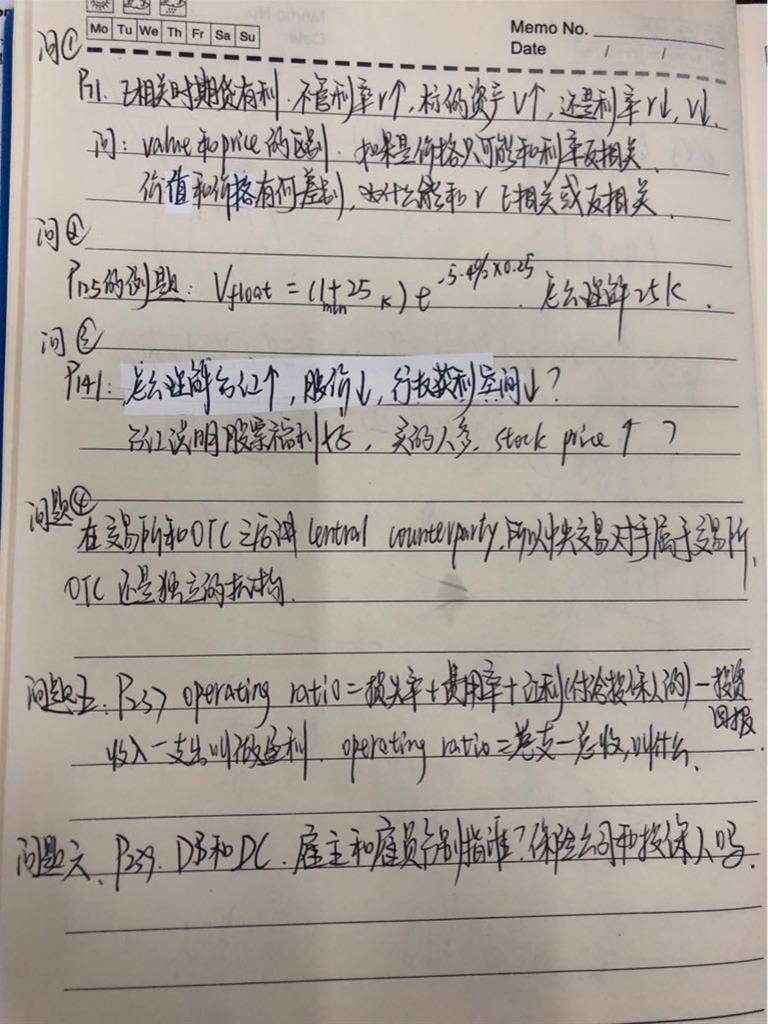 Mo Tu We Th Fr Sa Su
Memo No.
Date / /
问①
P71. 正相关时期货有利. 不管利率r↑, 标的资产V↑, 还是利率r↓, V↓.
问: value和price的区别. 如果是价格只可能和利率反相关.
价值和价格有何差别, 为什么能和r正相关或反相关.
问②
P125的例题: Vfloat = (1mln + 25K) e^-5.4%×0.25 怎么理解25K.
问③
P141: 怎么理解分红↑, 股价↓, 行权获利空间↓?
分红说明股票福利好, 买的人多, stock price ↑ ?
问题④
在交易所和OTC之后讲Central counterparty, 所以中央交易对手属于交易所,
OTC 还是独立的机构.
问题五. P237 operating ratio = 损失率 + 费用率 + 红利(付给投保人的) - 投资
回报.
收入 - 支出叫做盈利. operating ratio = 总支 - 总收, 叫什么.
问题六. P239. DB和DC. 雇主和雇员分别指谁? 保险公司和投保人吗.